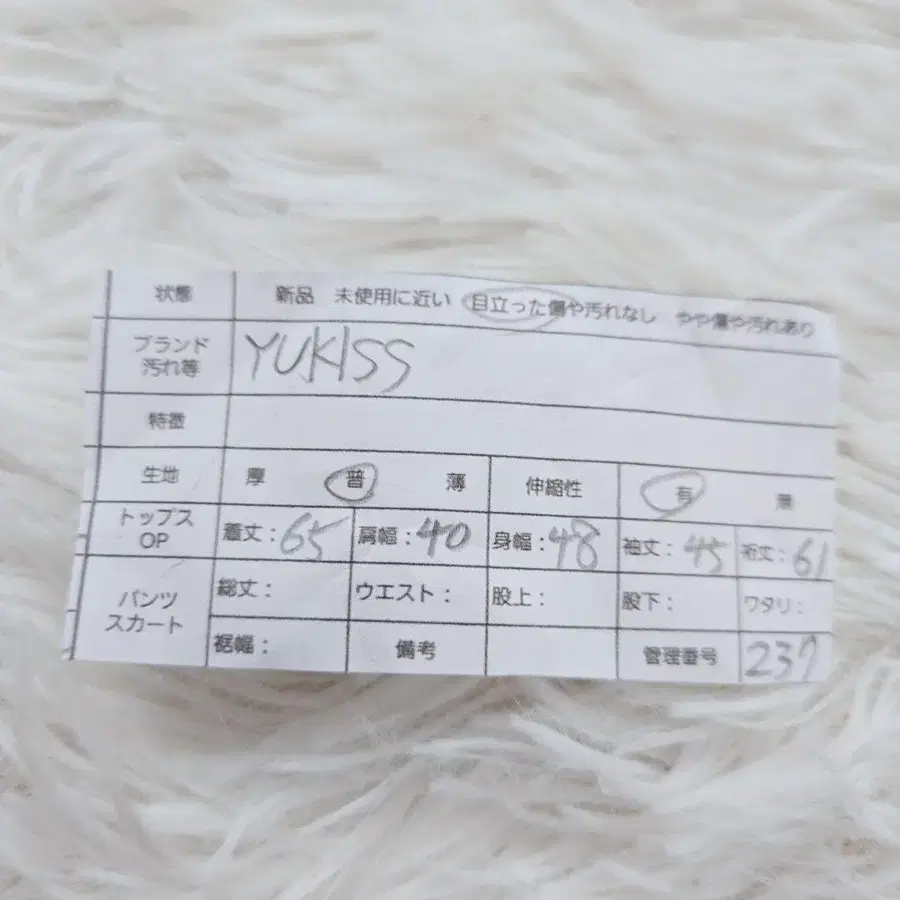 状態 新品 未使用に近い 目立った傷や汚れなし やや傷や汚れあり
ブランド YUKISS
汚れ等
特徴
生地 厚 普 薄 伸縮性 有 無
トップス OP 着丈:65 肩幅:40 身幅:48 袖丈:45 裄丈:61
パンツ スカート 総丈: ウエスト: 股上: 股下: ワタリ:
裾幅: 備考 管理番号 237